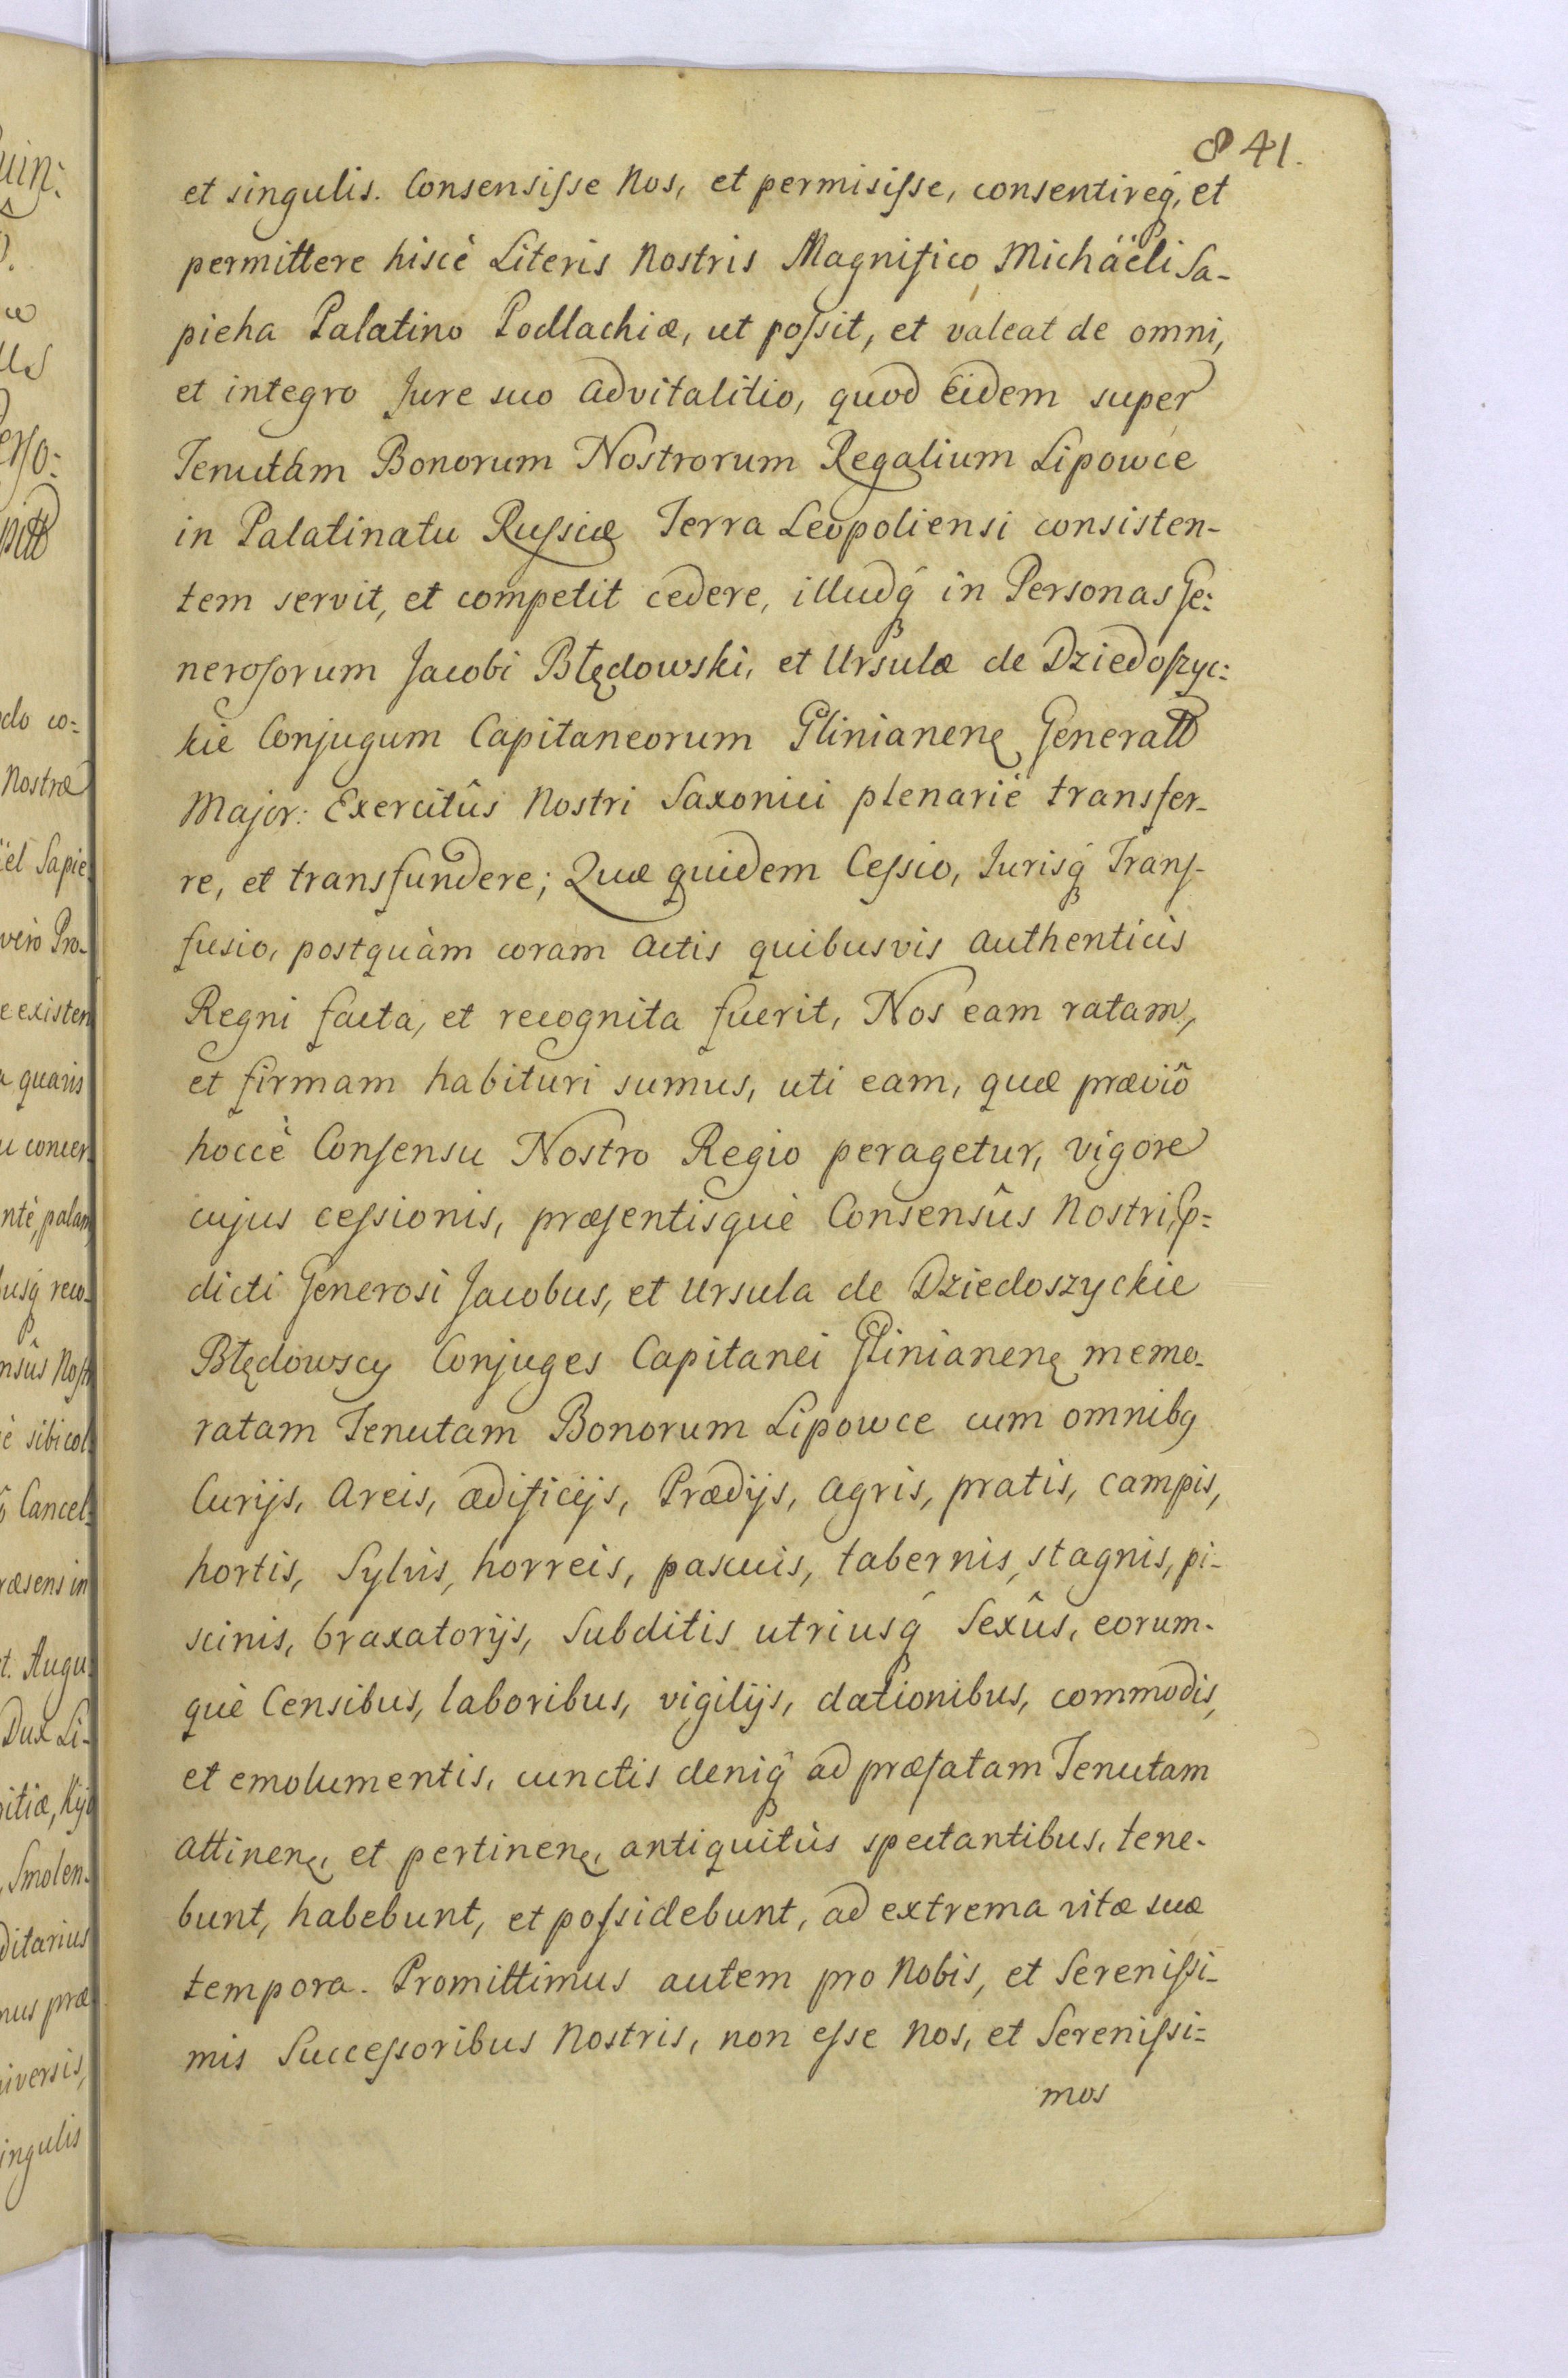 841.
et singulis. Consensiſse Nos, et permisiſse, consentireq́, et
permittere hiscè Literis Nostris Magnifico Michäëli Sa-
pieha Palatino Podlachiæ, ut poſsit, et valeat de omni,
et integro Jure suo advitalitio, quod Eidem super
Tenutam Bonorum Nostrorum Regalium Lipowce
in Palatinatu Ruſsiæ Terra Leopoliensi consisten-
tem servit, et competit cedere, illudq́ in Personas Ge:
neroſorum Jacobi Błędowski, et Ursulæ de Dziedoſzyc:
kie Conjugum Capitaneorum Glinianenę Generall
Major: Exercitûs Nostri Saxonici plenariè transfer-
re, et transfundere; Quæ quidem Ceſsio, Jurisq́ Tranſ-
fusio, postquàm coram Actis quibusvis Authenticis
Regni facta, et recognita fuerit, Nos eam ratam,
et firmam habituri sumus, uti eam, quæ præviô
hoccè Conſensu Nostro Regio peragetur, vigore
cujus ceſsionis, præſentisquè Consensûs Nostri, p=
dicti Generosi Jacobus, et Ursula de Dziedoszyckie
Błędowscy Conjuges Capitanei Glinianenę memo-
ratam Tenutam Bonorum Lipowce cum omnibq
Curijs, Areis, ædificijs, Prædijs, Agris, pratis, campis,
hortis, Sylvis, horreis, pascuis, tabernis, stagnis, pi-
scinis, braxatorijs, Subditis utriusq́ Sexûs, eorum-
què Censibus, laboribus, vigilijs, dationibus, commodis,
et emolumentis, cunctis deniq́ ad præfatam Tenutam
Attinenę, et pertinenę, antiquitùs spectantibus, tene-
bunt, habebunt, et poſsidebunt, ad extrema vitæ suæ
tempora. Promittimus autem pro Nobis, et Sereniſsi-
mis Succeſsoribus Nostris, non eſse Nos, et Sereniſsi=
mos